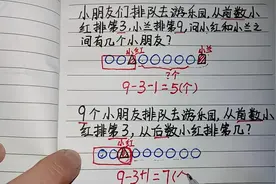 小朋友们排队去游乐园,从前数小
红排第3,小兰排第9,问小红和小兰之
间有几个小朋友?
小红 小兰
?个
9-3-1=5(个)
9个小朋友排队去游乐园,从前数小
红排第3,从后数小红排第几?
小红
9-3+1=7(个